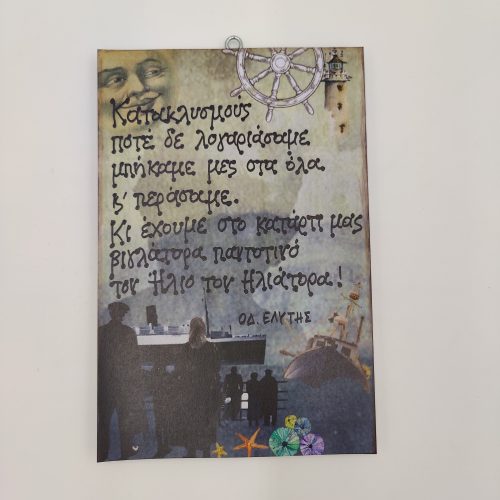 Κατακλυσμούς
ποτέ δε λογαριάσαμε
μπήκαμε μες στα όλα
κ' περάσαμε.
Κι έχουμε στο κατάρτι μας
βιγλάτορα παντοτινό
τον Ήλιο τον Ηλιάτορα!
ΟΔ. ΕΛΥΤΗΣ